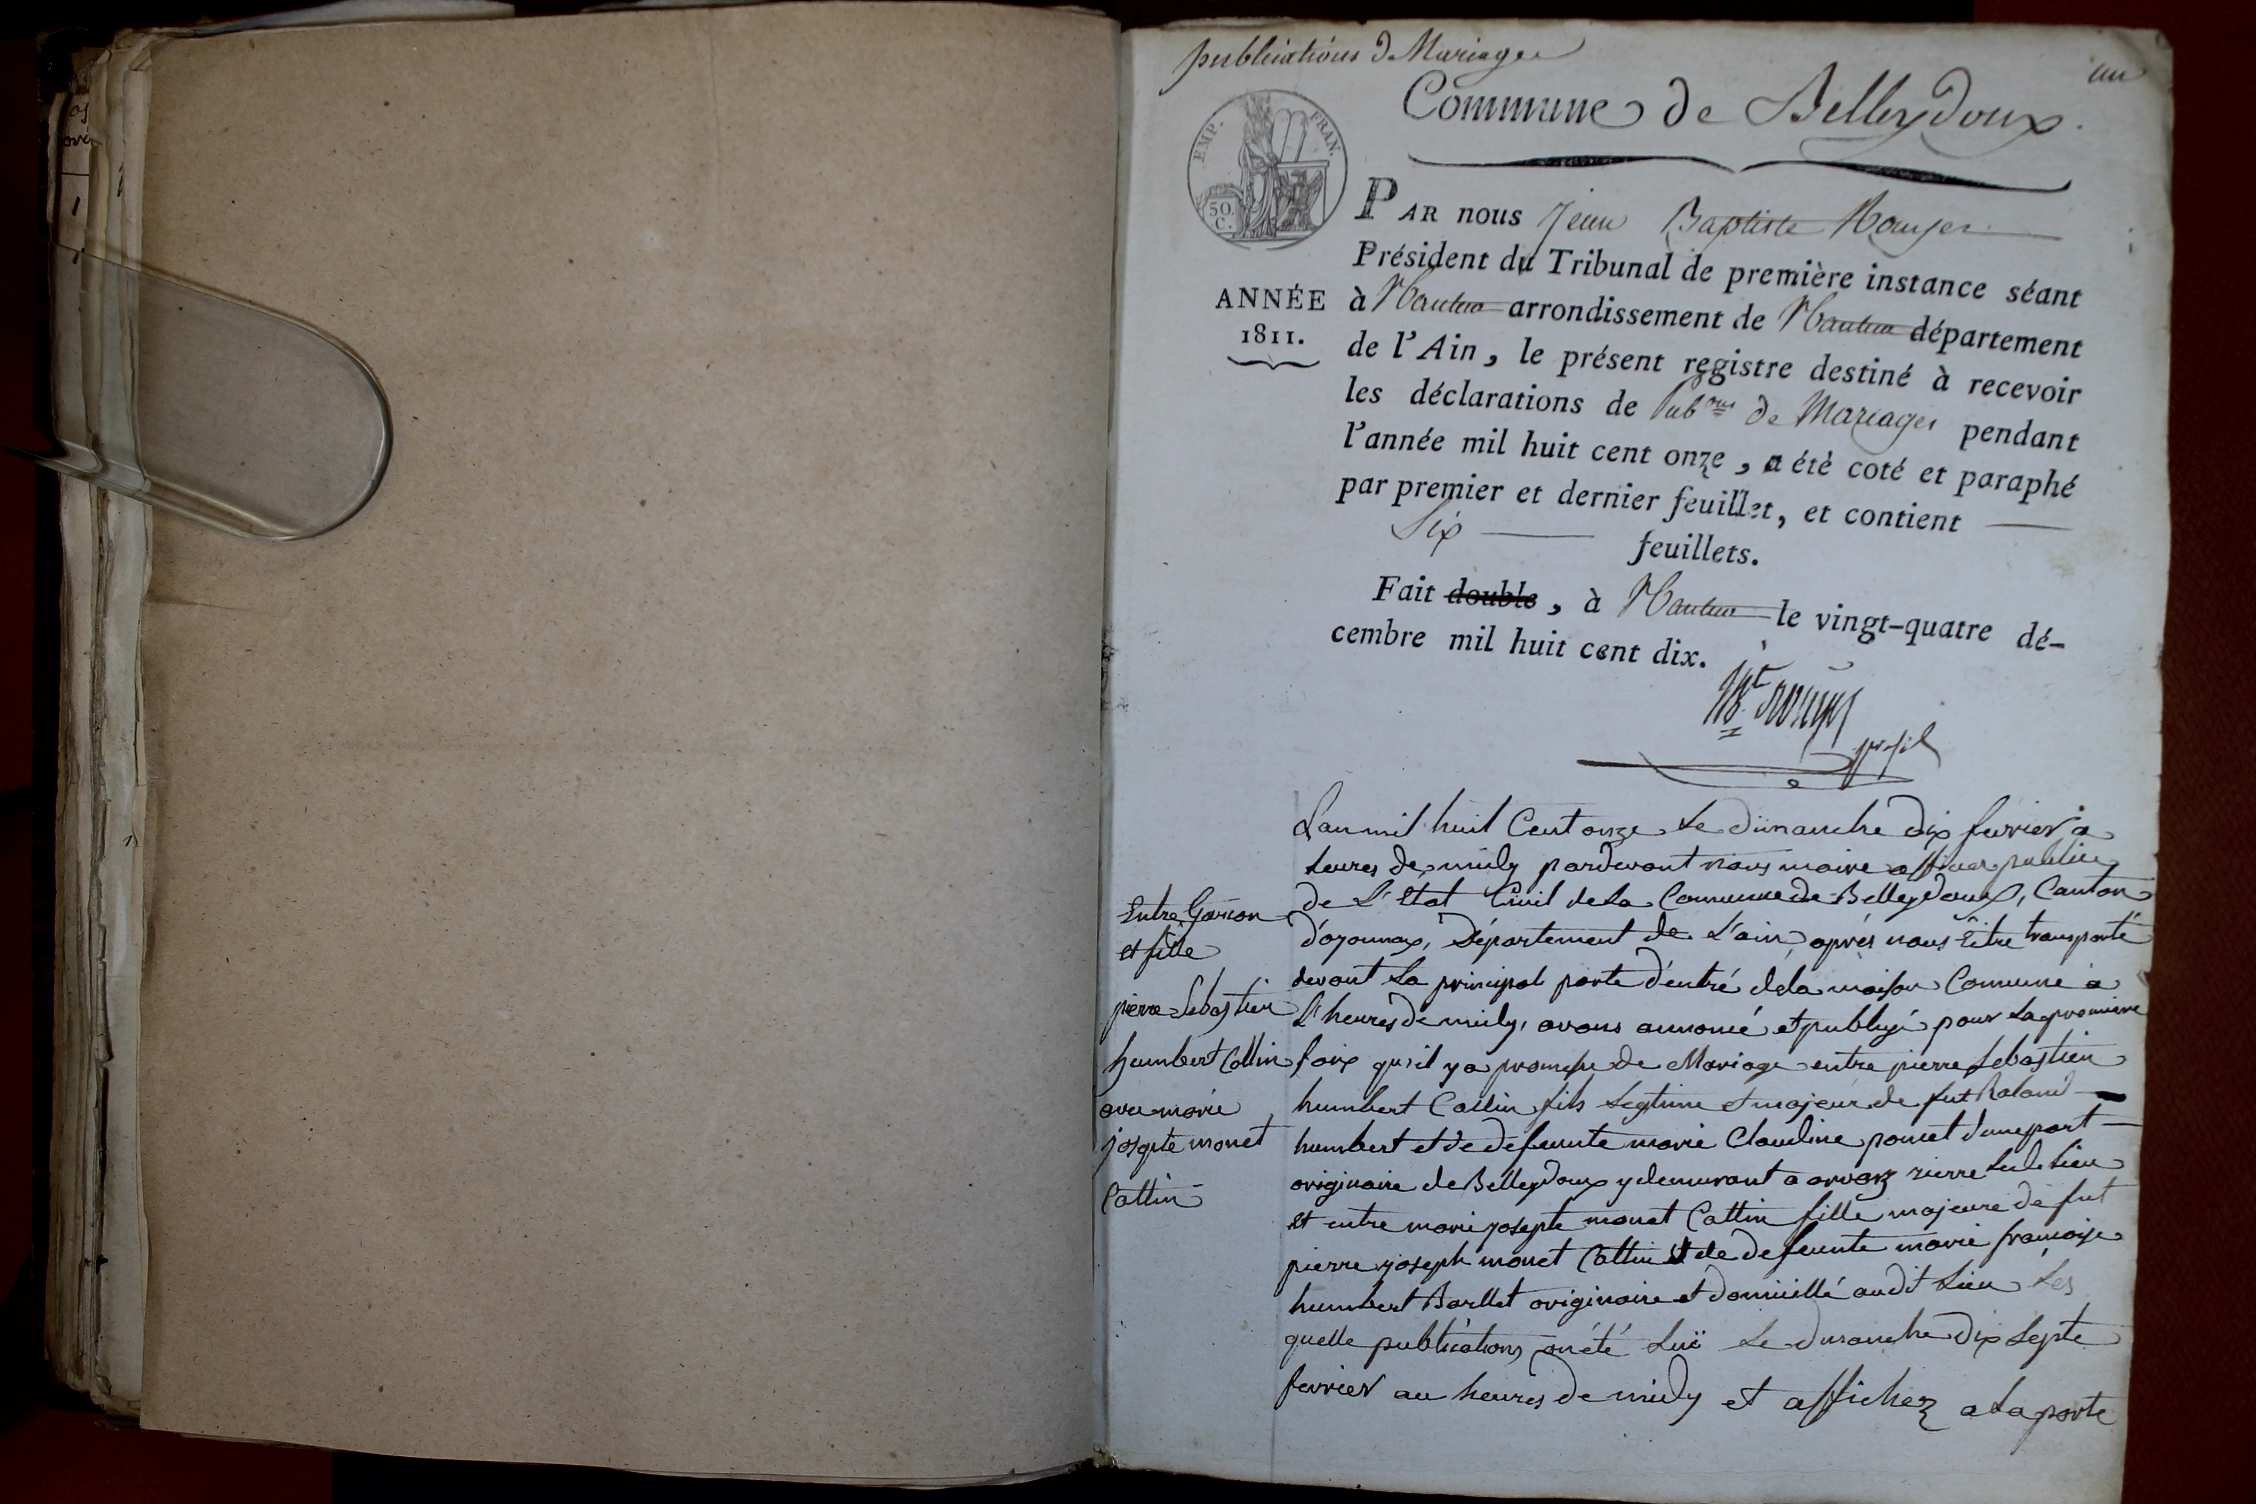 publications de Mariages
un
Commune de Belleydoux.
EMP. FRAN.
50. C.
PAR nous Jean Baptiste Rouyer
Président du Tribunal de première instance séant
ANNÉE
1811.
à Nantua arrondissement de Nantua département
de l'Ain, le présent registre destiné à recevoir
les déclarations de Pub.ons de Mariages pendant
l'année mil huit cent onze, a été coté et paraphé
par premier et dernier feuillet, et contient
Six feuillets.
Fait double, à Nantua le vingt-quatre dé-
cembre mil huit cent dix.
L'an mil huit Cent onze le dimanche dix fevrier a
heures de midy pardevant nous maire officier publicq
de L'Etat Civil de la Commune de Belleydoux, Canton
d'oyonnax, Département de L'ain, aprés nous Eitre transporté
devant La principal porte d'entré dela maison Comune a
L'heures de midy, avons annoncé et publiyé pour la premiere
foix qu'il y a promesse de Mariage entre pierre Sebastien
humbert Collin fils legtime et majeur de fut Roland
humbert et de defeunte marie Claudine poncet d'une part
originaire de Belleydoux y demurant a orvaz rierre le dit lieu
et entre marie josepte monet Cattin fille majeure de fut
pierre joseph monet Cattin et de defeunte marie francoise
humbert Barllet originaire et domicillé audit Lieu Les
quelle publications on été luë le dimanche dix septe
fevrier au heures de midy et affichez a La porte
Entre Garcon
et fille
pierre Sebastien
humbert Collin
avec marie
josepte monet
Cattin